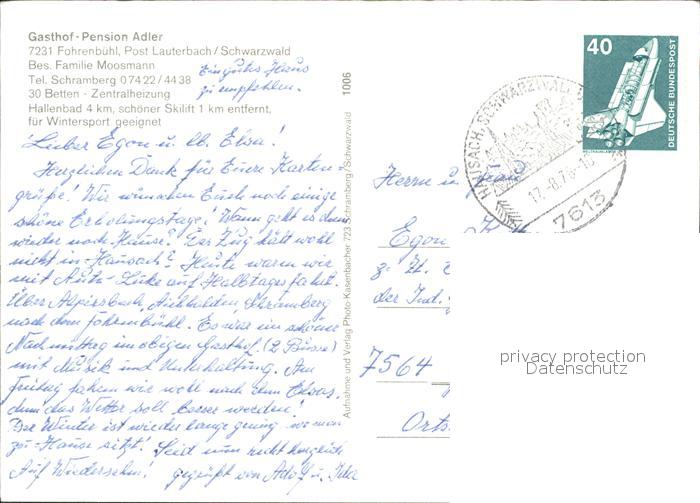 Gasthof - Pension Adler
7231 Fohrenbühl, Post Lauterbach / Schwarzwald
Bes. Familie Moosmann
Tel. Schramberg 07422/4438
30 Betten - Zentralheizung
Hallenbad 4 km, schöner Skilift 1 km entfernt,
für Wintersport geeignet
Ein gutes Haus
zu empfehlen.
Lieber Egon u. lb. Elsa!
Herzlichen Dank für Eure Karten-
grüße! Wir wünschen Euch noch einige
schöne Erholungstage! Wann geht es dann
wieder nach Hause? Der Zug hält wohl
nicht in Hausach? Heute waren wir
mit Auto- auf Halbtagesfahrt.
Über Alpirsbach, Aichhalden, Schramberg
nach dem Fohrenbühl. Es war ein schöner
Nachmittag im obigen Gasthof. (2 Busse)
mit Musik und Unterhaltung. Am
Freitag fahren wir wohl nach dem Elsass.
denn das Wetter soll besser werden!
Der Winter ist wieder lange genug, wo man
zu Hause sitzt! Seid nun recht herzlich
Auf Wiedersehen! gegrüßt von Adolf u. Ida
1006
Aufnahme und Verlag Photo-Kasenbacher 723 Schramberg/Schwarzwald
40
DEUTSCHE BUNDESPOST
HAUSACH, SCHWARZWALD
17.-8.78-18
7613
Herrn u. Frau
Egon
z. Zt.
der Ind.
7564
Orts
privacy protection
Datenschutz